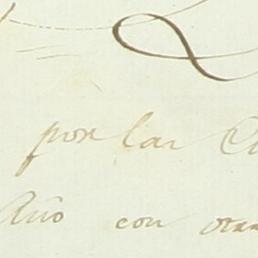 por las
Año con